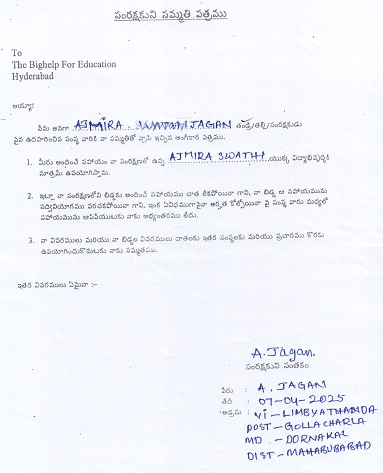 సంరక్షకుని సమ్మతి పత్రము
To
The Bighelp For Education
Hyderabad
అయ్యా!
నేను అనగా AJMIRA. SWATHI JAGAN తండ్రి/తల్లి/సంరక్షకుడు
పైన ఉదహరించిన సంస్థ వారికి నా సమ్మతితో వ్రాసి ఇచ్చిన అంగీకార పత్రము.
1. మీరు అందించే సహాయం నా సంరక్షణలో ఉన్న AJMIRA SWATHI యొక్క విద్యాభివృద్ధికి
మాత్రమే ఉపయోగిస్తాము.
2. ఇట్లా నా సంరక్షణలోని బిడ్డకు అందించే సహాయము చాత లేకపోయినా గాని, నా బిడ్డ ఆ సహాయమును
సద్వినియోగము పరచకపోయినా గాని, ఇంక ఏవిధముగానైనా అర్హత కోల్పోయినా పై సంస్థ వారు మధ్యలో
సహాయమును ఆపివేయుటకు నాకు అభ్యంతరము లేదు.
3. నా వివరములు మరియు నా బిడ్డల వివరములు దాతలకు ఇతర సంస్థలకు మరియు ప్రచారము కొరకు
ఉపయోగించుకొనుటకు నాకు సమ్మతము.
ఇతర వివరములు ఏమైనా :-
A. Jagan.
సంరక్షకుని సంతకం
పేరు : A. JAGAN
తేది : 07-04-2025
అడ్రసు : Vi - LIMBYATHANDA
POST - GOLLACHARLA
MD - DORNAKAL
DIST - MAHABUBABAD